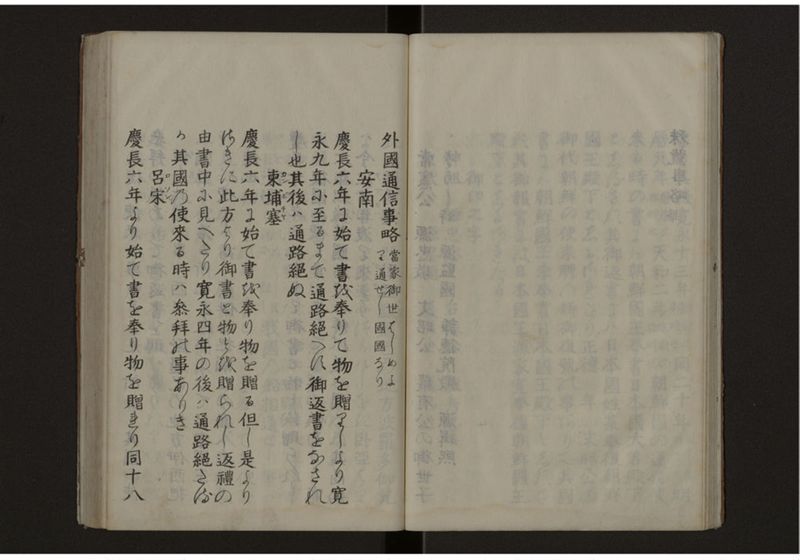 外國通信事略 當家御世はしめよ
り通せし國國なり
安南
慶長六年に始て書を奉りて物を贈りしより寛
永九年に至るまて通路絕へす御返書をなされ
し也其後ハ通路絕ぬ
柬埔塞
慶長六年に始て書を奉り物を贈る但し是より
さきに此方より御書と物とを贈られし返禮の
由書中に見へたり寛永四年の後ハ通路絕たる
か其國の使來る時ハ參拜の事ありき
呂宋
慶長六年より始て書を奉り物を贈れり同十八